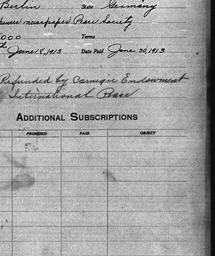 Berlin State Germany
newspaper Peace Society
000 Terms
June 18, 1913 Date Paid June 20, 1913
Refunded by Carnegie Endowment
International Peace
ADDITIONAL SUBSCRIPTIONS
PROMISED PAID OBJECT